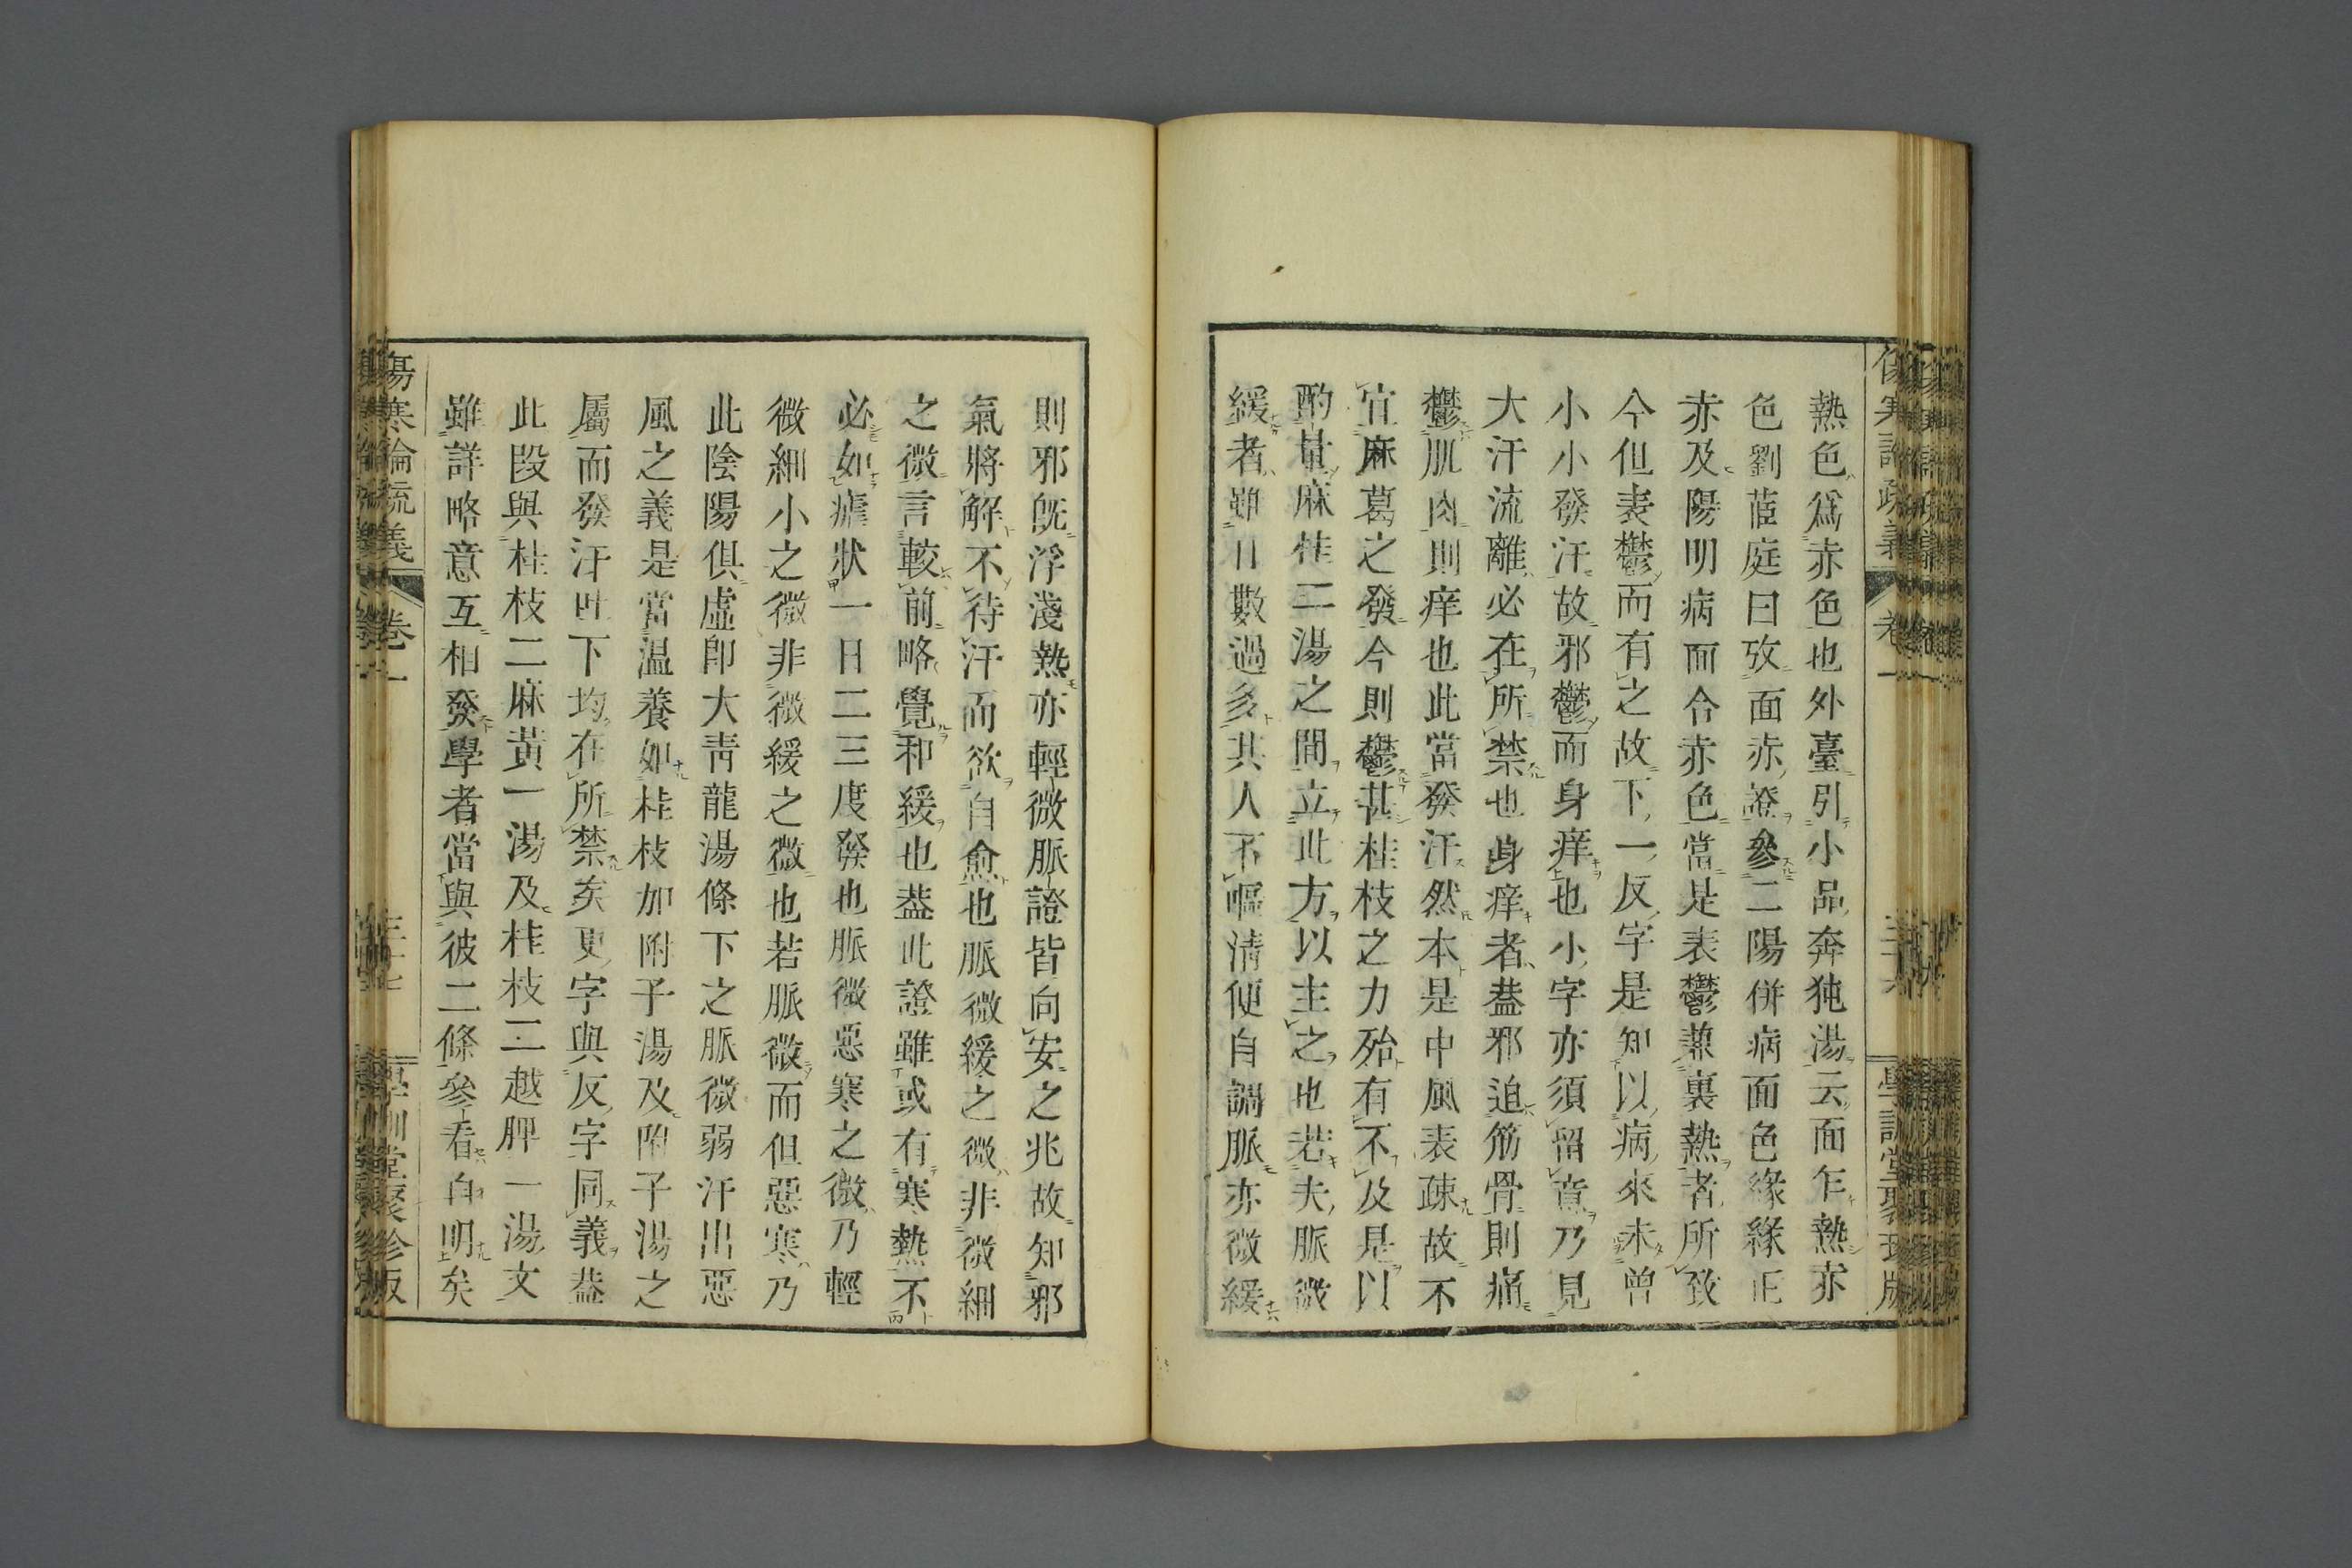 熱色爲赤色也外臺引小品奔㹠湯云面乍熱赤
色劉茝庭曰攷面赤證參二陽併病面色緣緣正
赤及陽明病面合赤色當是表鬱兼裏熱者所致
今但表鬱而有之故下一反字是知以病來未曾
小小發汗故邪鬱而身痒也小字亦須留意乃見
大汗流離必在所禁也身痒者葢邪迫筋骨則痛
鬱肌肉則痒也此當發汗然本是中風表疎故不
宜麻葛之發今則鬱甚桂枝之力殆有不及是以
酌量麻桂二湯之間立此方以主之也若夫脈微
緩者雖日數過多其人不嘔淸便自調脈亦微緩
傷寒論疏義
卷一
三十六
學訓堂聚珍版
則邪旣浮淺熱亦輕微脈證皆向安之兆故知邪
氣將解不待汗而欲自愈也脈微緩之微非微細
之微言較前略覺和緩也葢此證雖或有寒熱不
必如瘧狀一日二三度發也脈微惡寒之微乃輕
微細小之微非微緩之微也若脈微而但惡寒乃
此陰陽俱虛卽大靑龍湯條下之脈微弱汗出惡
風之義是當温養如桂枝加附子湯及附子湯之
屬而發汗吐下均在所禁矣更字與反字同義葢
此段與桂枝二麻黃一湯及桂枝二越脾一湯文
雖詳略意互相發學者當與彼二條參看自明矣
傷寒論疏義
卷一
三十七
學訓堂聚珍版